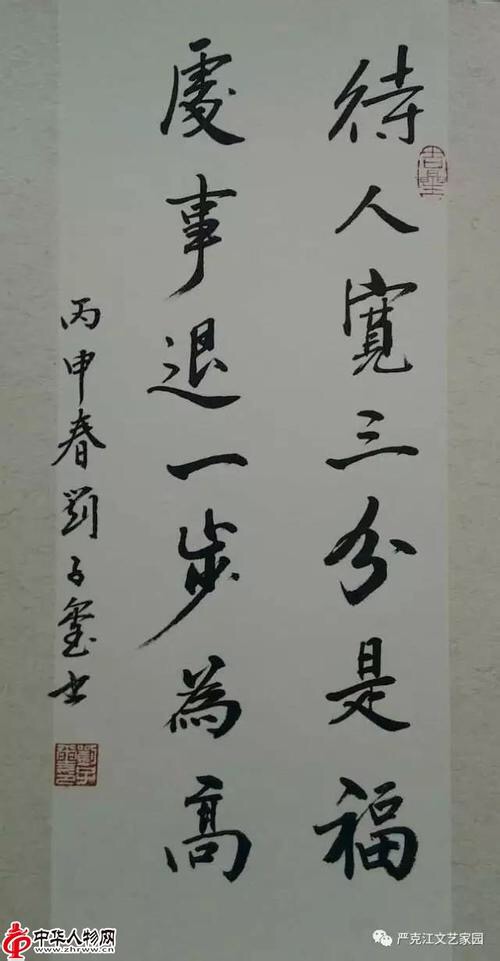 待人寬三分是福
處事退一步為高
丙申春劉子璽书
中华人物网
www.zhrww.cn
严克江文艺家园